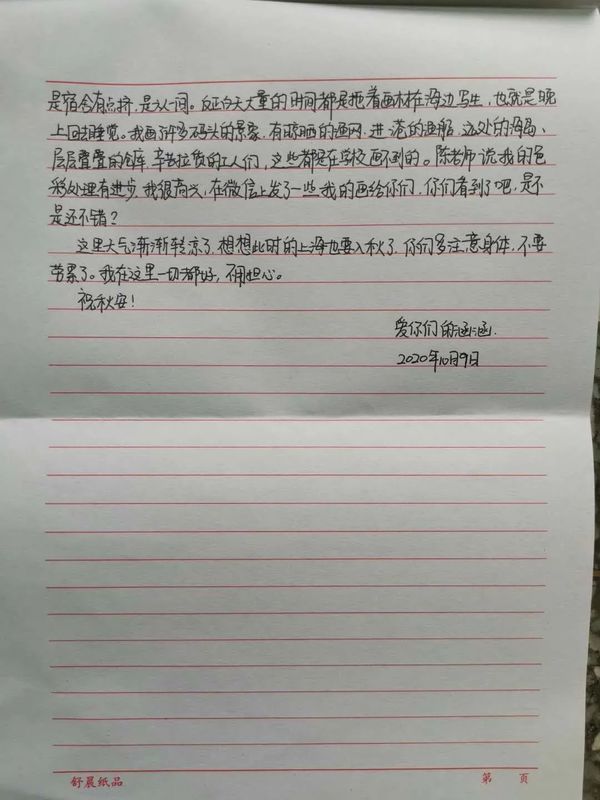 是宿舍有点挤,是六人间。反正白天大量的时间都是拖着画材在海边写生,也就是晚
上回去睡觉。我画了许多码头的景象,有晾晒的渔网、进港的渔船、远处的海岛、
层层叠叠的仓库、辛苦拉货的工人们,这些都是在学校画不到的。陈老师说我的色
彩处理有进步,我很高兴,在微信上发了一些我的画给你们,你们看到了吧,是不
是还不错?
这里天气渐渐转凉了,想想此时的上海也要入秋了,你们多注意身体,不要
劳累了。我在这里一切都好,不用担心。
祝秋安!
爱你们的涵涵.
2020年10月9日
舒晨纸品
第 页